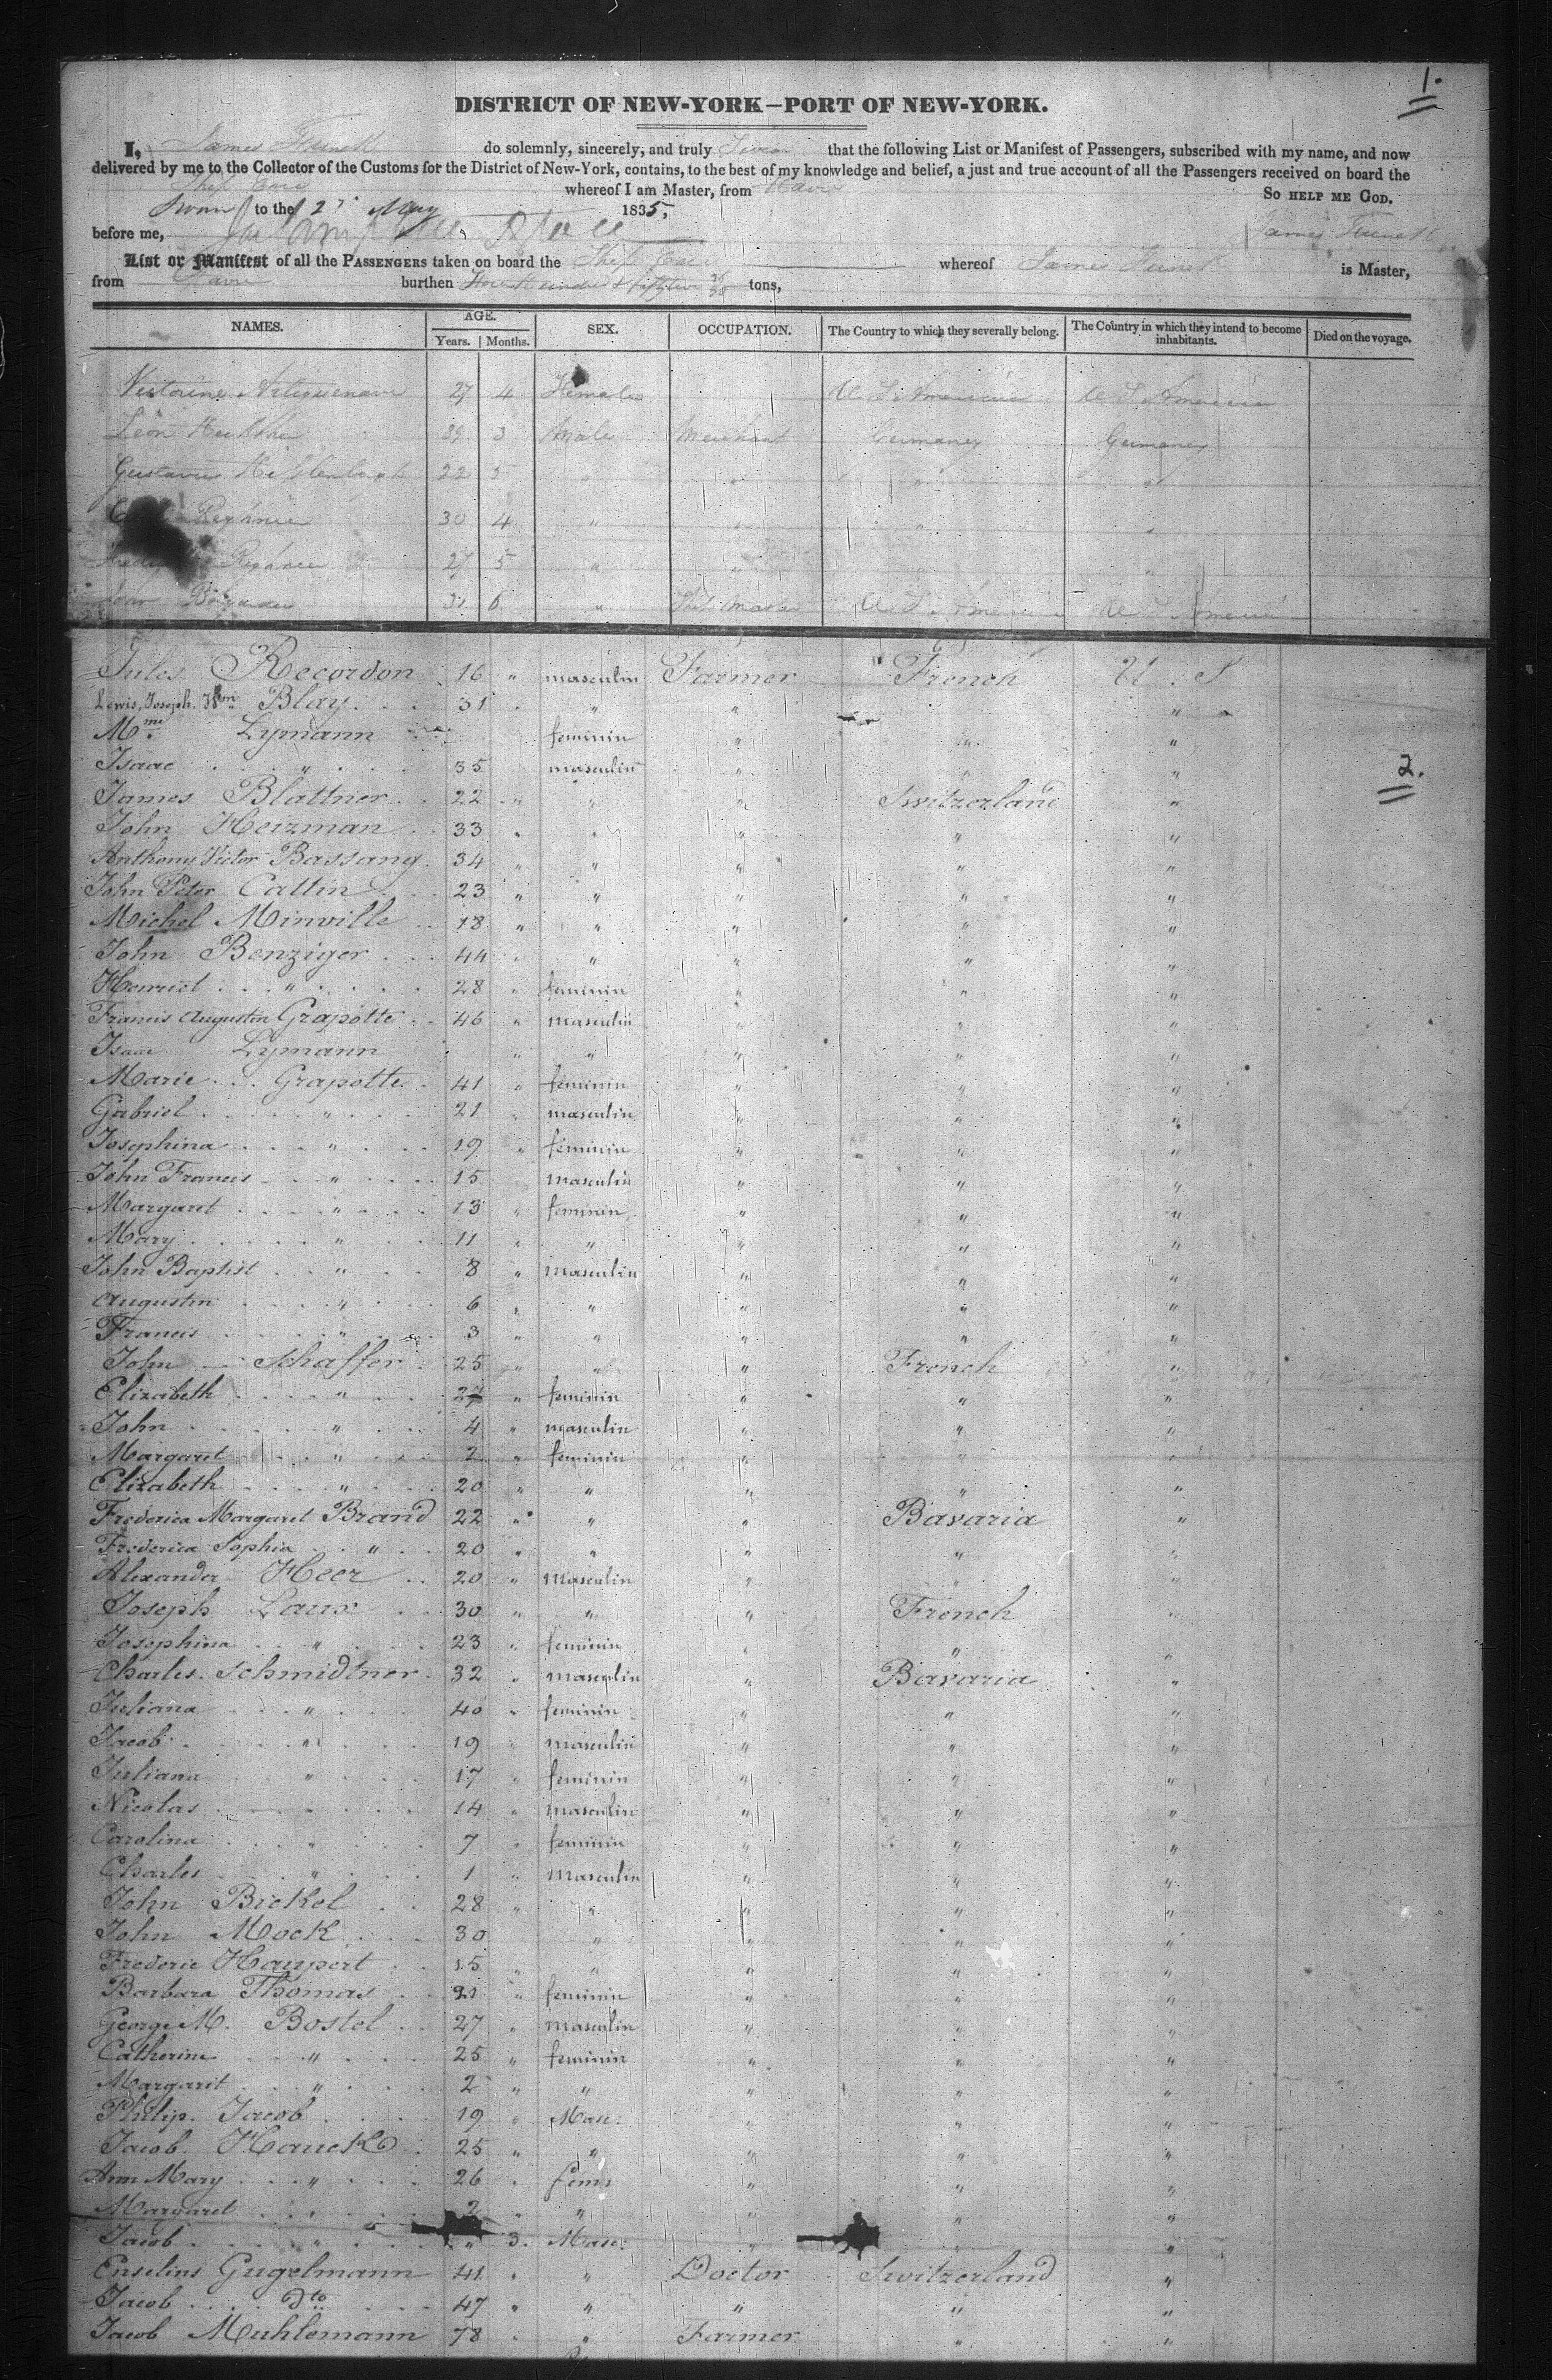 1.
DISTRICT OF NEW-YORK—PORT OF NEW-YORK.
I, James do solemnly, sincerely, and truly that the following List or Manifest of Passengers, subscribed with my name, and now
delivered by me to the Collector of the Customs for the District of New-York, contains, to the best of my knowledge and belief, a just and true account of all the Passengers received on board the
Ship whereof I am Master, from Havre So HELP ME GOD.
Sworn to the 2 May 1835,
before me, James
List or Manifest of all the PASSENGERS taken on board the Ship whereof James is Master,
from Havre burthen tons,
NAMES. AGE. SEX. OCCUPATION. The Country to which they severally belong. The Country in which they intend to become inhabitants. Died on the voyage.
Years. Months.
27 4 Female U S America U S America
Leon 39 3 Male Merchant Germany Germany
Gustavus 22 5 " " " "
30 4 " " " "
27 5 " " " "
6 " U S America U S America
Jules Recordon 16 " masculin Farmer French U. S
Lewis, Joseph. Blay . . . 31 " " " "
Mme Lymann feminin " " "
Isaac . . " . . 35 masculin " " "
2.
James Blattner . 22 " " " Switzerland "
John Heizman . . 33 " " " " "
Anthony Victor Bassang . 34 " " " " "
John Peter Cattin . . 23 " " " " "
Michel Minville . . 18 " " " " "
John Benziger . . . 44 " " " " "
Henriet . . . " . . . 28 " feminin " " "
Francis Augustin Grapotte . . 46 " masculin " " "
Isaac Lymann " " " " "
Marie . . . Grapotte . 41 " feminin " " "
Gabriel . . . . " . . . 21 " masculin " " "
Josephina . . . " . . . 19 " feminin " " "
John Francis . . . " . . . 15 masculin " " "
Margaret . . . . " . . . 13 " feminin " " "
Mary . . . . . " . . . 11 " " " " "
John Baptist . . " . . 8 " masculin " " "
Augustin . . . . " . . . 6 " " " " "
Francis . . . . " . . 3 " " " " "
John — Schaffer . 25 " " " French "
Elizabeth . . . . " . . 27 " feminin " " "
John . . . . . " . . 4 " masculin " " "
Margaret . . " . . 2 " feminin " " "
Elizabeth . . . . " . . 20 " " " " "
Frederica Margaret Brand 22 " " " Bavaria "
Frederica Sophia . . " . . 20 " " " " "
Alexander Heer . . 20 " masculin " " "
Joseph Laux . . 30 " " " French "
Josephina . . . " . . . 23 " feminin " " "
Charles Schmidtner . 32 " masculin " Bavaria "
Juliana . . . " . . 40 " feminin " " "
Jacob . . . . " . . 19 " masculin " " "
Juliana . . . " . . . 17 " feminin " " "
Nicolas . . . " . . . 14 " masculin " " "
Carolina . . . " . . . 7 " feminin " " "
Charles . . . " . . . 1 " masculin " " "
John Bickel . . 28 " " " " "
John Mock . . . 30 " " " "
Frederic Haupert . . 15 " " " " "
Barbara Thomas . . 21 " feminin " " "
George M. Bostel . . 27 " masculin " " "
Catherine . . . " . . . 25 " feminin " " "
Margarit . . . " . . . 2 " " " " "
Philip. Jacob . . . . 19 " Masc: " " "
Jacob. Hauck . . 25 " " " " "
Ann Mary . . . " . . . 26 " fem: " " "
Margaret . . . . . . 2 " " " " "
Jacob . . . . " . . . " 3. Masc: " " "
Gugelmann 41 " " Doctor Switzerland "
Jacob . . . . dto . . . . 47 " " " " "
Jacob Muhlemann 78 " " Farmer " "